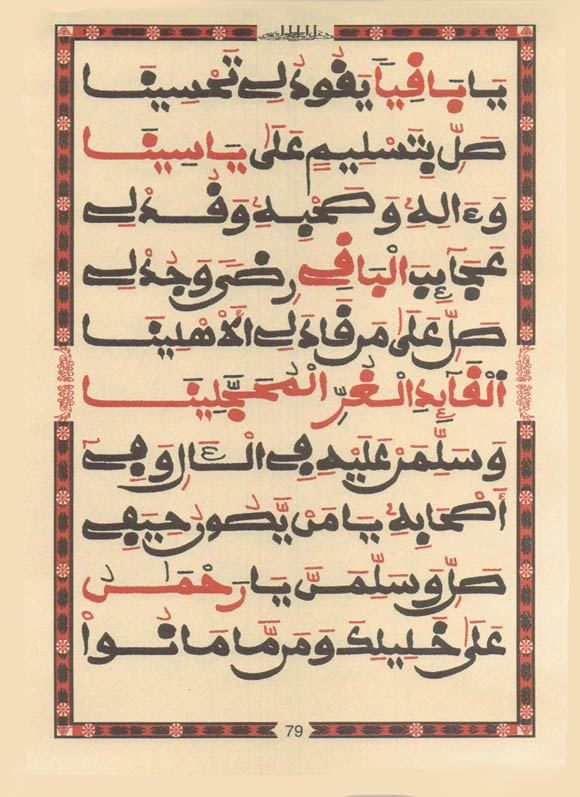 يَا بَاقِياً يَقُودُ لِي تَحْسِينَا
صَلِّ بِتَسْلِيمٍ عَلَى يَاسِينَا
وَءَالِهِ وَصَحْبِهِ وَقُدْ لِي
عَجَائِبَ الْبَاقِي رِضىً وَجُدْ لِي
صَلِّ عَلَى مَن قَادَ لِي ألَاهْلِينَا
أَلْقَآئِدِ الْغُرِّ الْمُحَجَّلِينَا
وَسَلِّمَنْ عَلَيْهِ فِي الْـَٔالِ وَفِي
أَصْحَابِهِ يَا مَنْ يَّصُونُ حِيَفِي
صَلِّ وَسَلِّمَنَّ يَا رَحْمَٰنُ
عَلَى خَلِيلِكَ وَمَن مَّا مَانُواْ
79